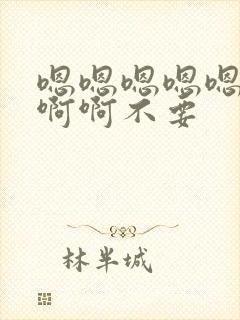 嗯嗯嗯嗯嗯
啊啊不要
林半城